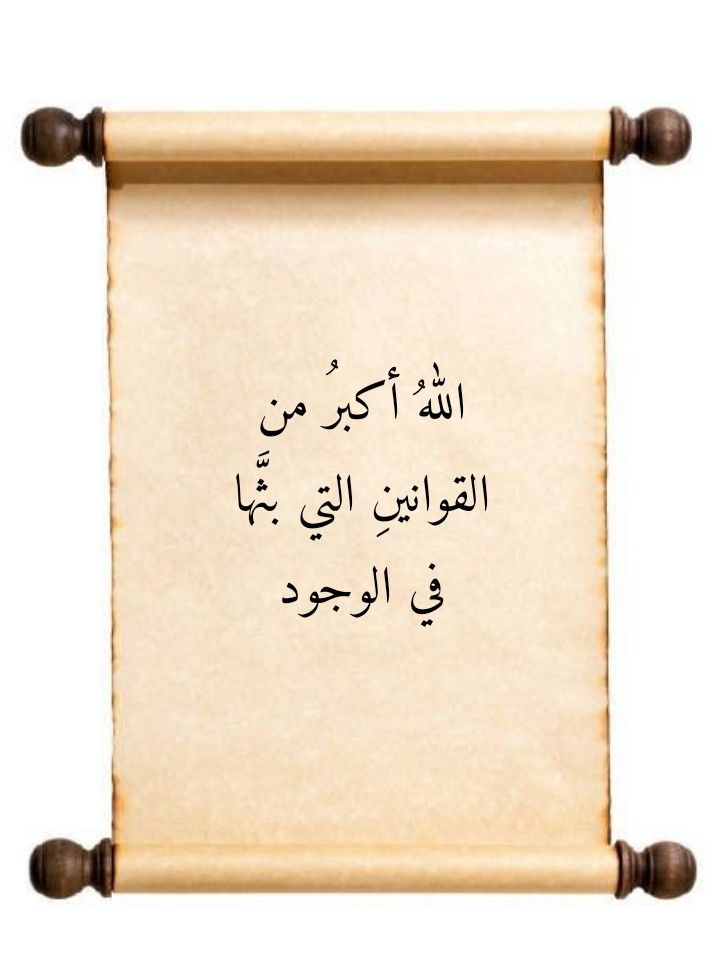 اللهُ أكبرُ من
القوانينِ التي بثَّها
في الوجود